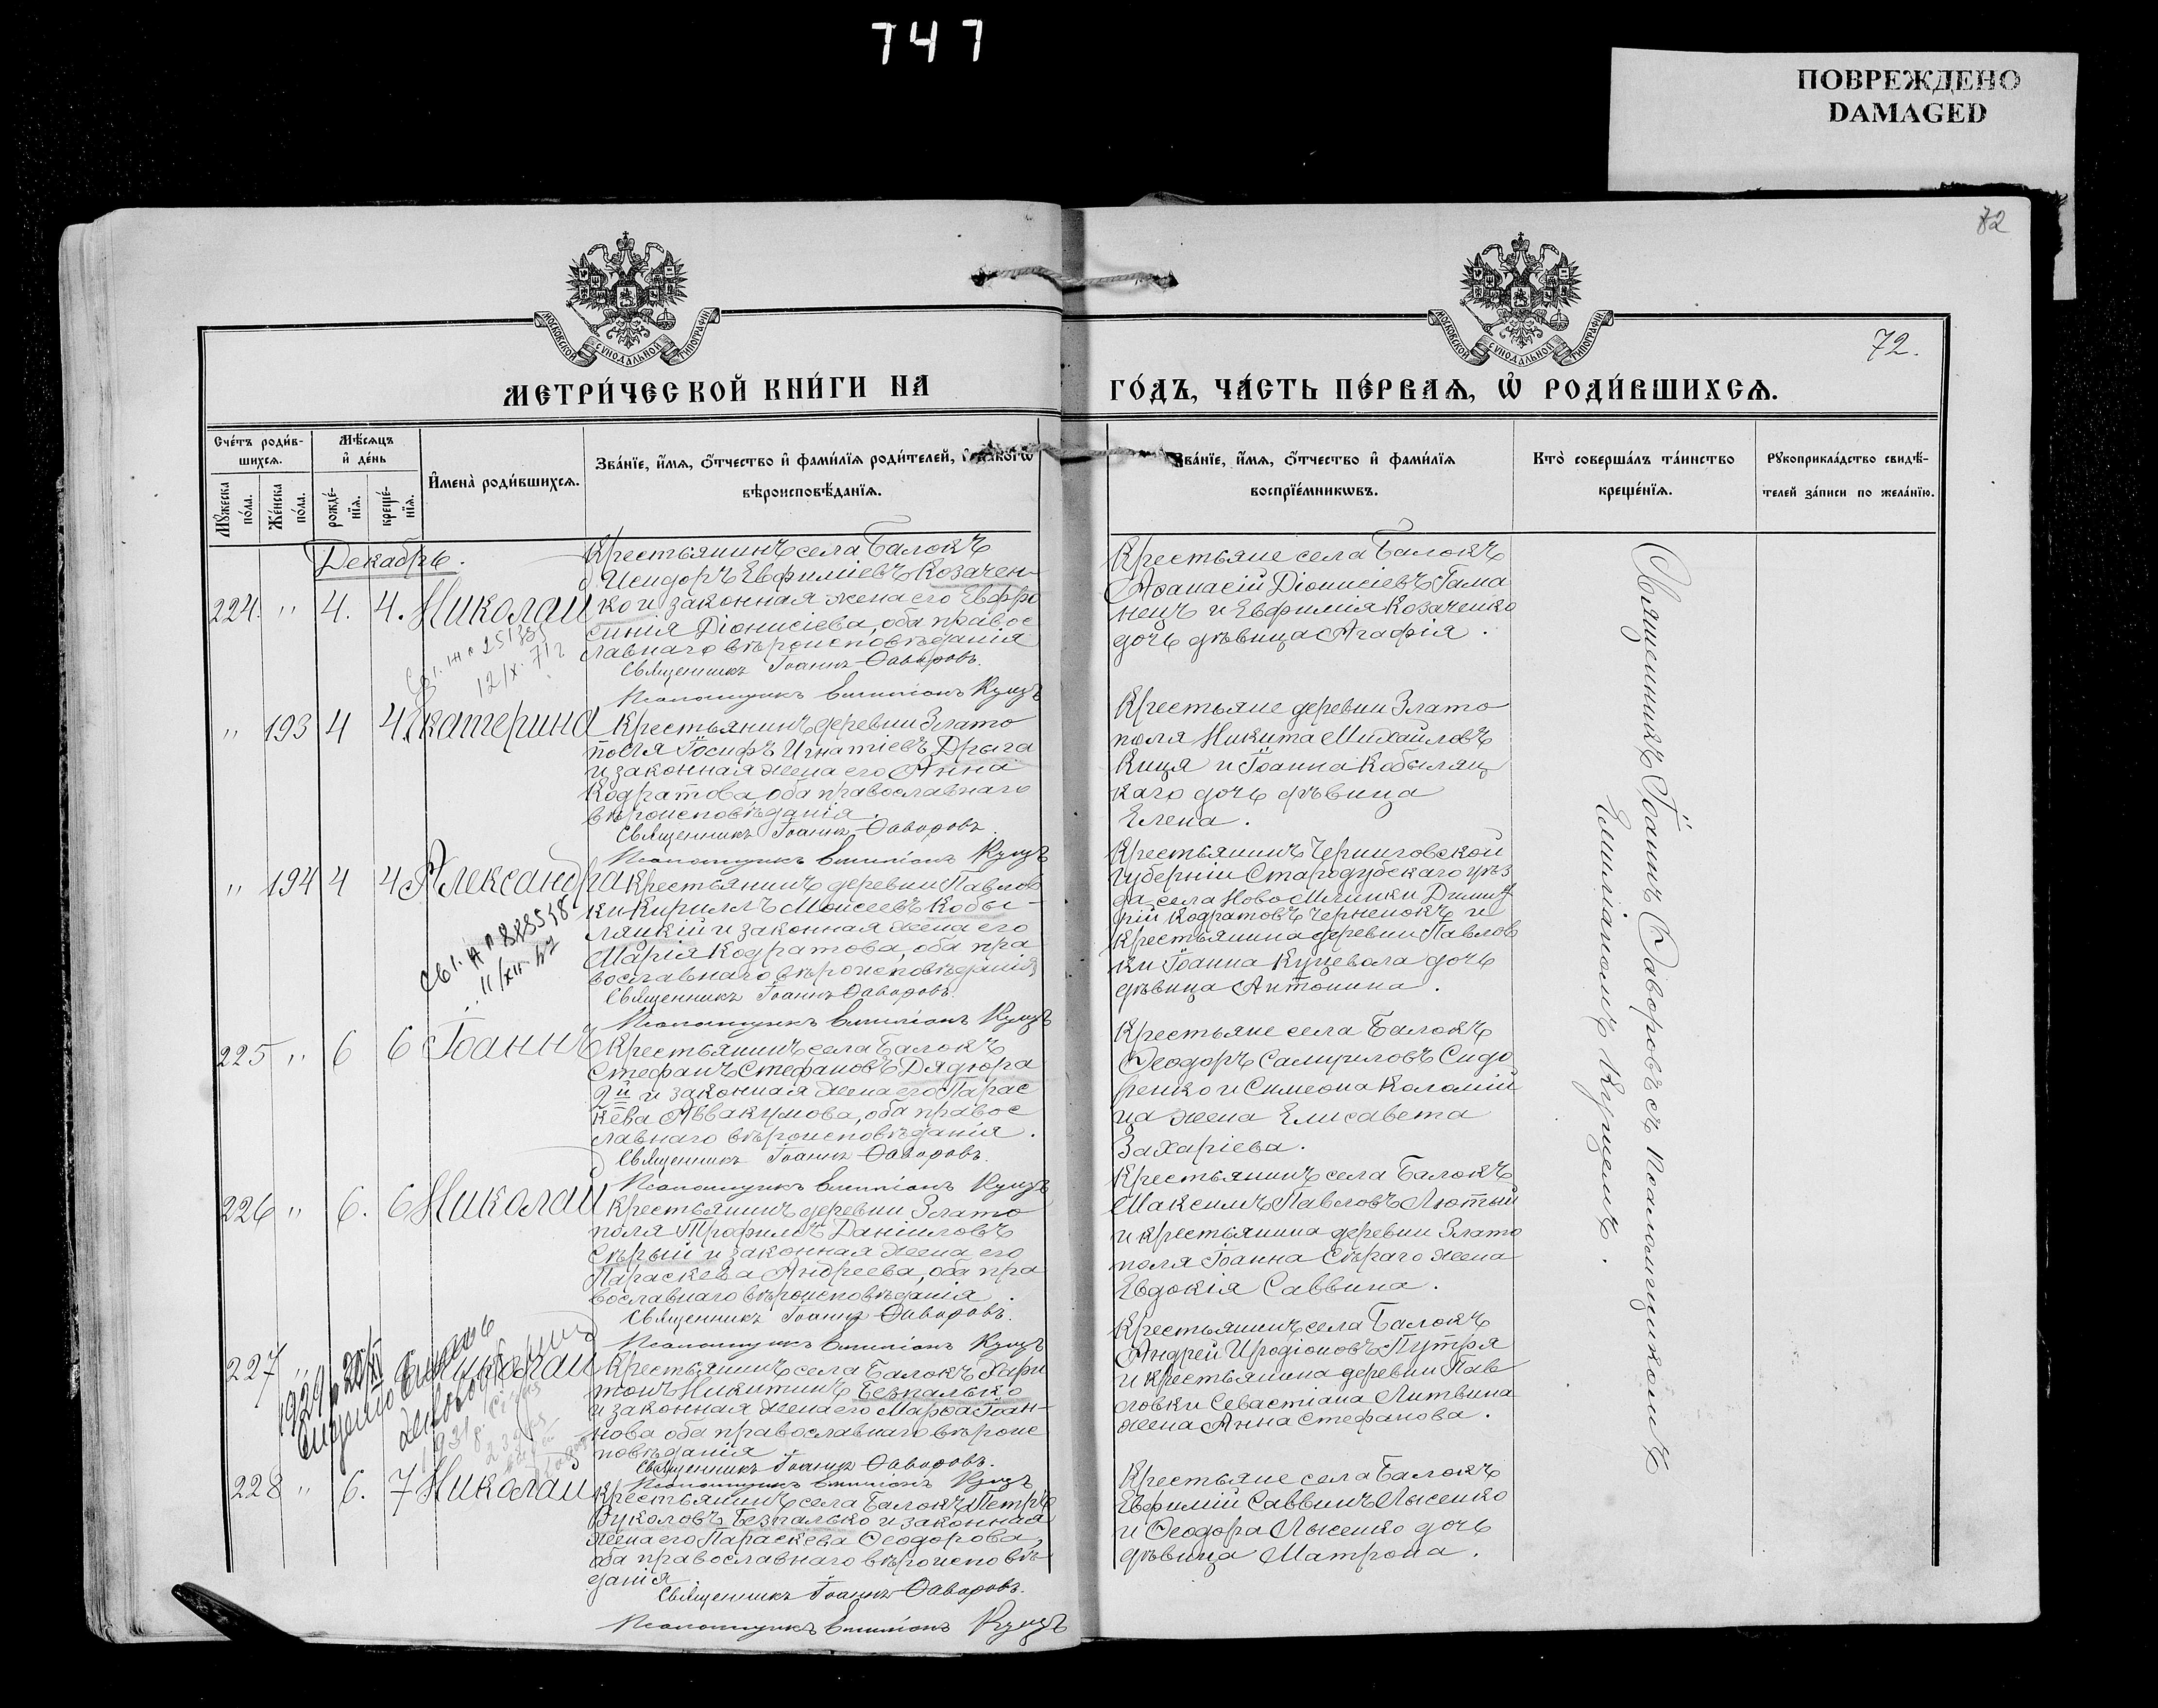 747
ПОВРЕЖДЕНО
DAMAGED
72
МОСКОВСКОЙ СѴНОДАЛЬНОЙ ТИПОГРАФІИ
МОСКОВСКОЙ СѴНОДАЛЬНОЙ ТИПОГРАФІИ
72.
МЕТРИ́ЧЕСКОЙ КНИ́ГИ НА
ГО́ДЪ, ЧА́СТЬ ПЕ́РВАѦ, Ѡ҆ РОДИ́ВШИХСѦ.
Сче́тъ роди́в-
шихсѧ.
Мѣ́сѧцъ
и҆ де́нь
И҆мена̀ роди́вшихсѧ.
Зва́нїе, и҆́мѧ, ѻ҆́тчество и҆ фами́лїѧ роди́телей, и҆ како́гѡ
вѣроисповѣ́данїѧ.
Мꙋ́жеска
по́ла.
Же́нска
по́ла.
рожде́-
нїѧ.
креще́-
нїѧ.
Зва́нїе, и҆́мѧ, ѻ҆́тчество и҆ фами́лїѧ
воспрїе́мникѡвъ.
Кто̀ соверша́лъ та́инство
креще́нїѧ.
Рꙋкоприкла́дство свидѣ́-
телей за́писи по жела́нїю.
Декабрь.
224. " 4. 4. Николай
Крестьянинъ села Балокъ
Исидоръ Евфиміевъ Козачен-
ко и законная жена его Евфро
синія Діонисіева, оба правос
лавнаго вѣроисповѣданія
Священникъ Іоаннъ Ѳаворовъ.
Псаломщикъ Емиліанъ Кущъ
12/X. 712
Крестьяне села Балокъ
Аѳанасій Діонисіевъ Гама
нецъ и Евфимія Козаченко
дочь дѣвица Агафія.
" 193 4 4. Екатерина
Крестьянинъ деревни Злато
поля Іосифъ Игнатіевъ Дрыга
и законная жена его Анна
Кодратова, оба православнаго
вѣроисповѣданія.
Священникъ Іоаннъ Ѳаворовъ.
Псаломщикъ Емиліанъ Кущъ
Крестьяне деревни Злато
поля Никита Михайловъ
Киця и Іоанна Кобыляц
каго дочь дѣвица
Елена.
" 194 4 4 Александра
Крестьянинъ деревни Павлов
ки Кириллъ Моисеевъ Кобы-
ляцкій и законная жена его
Марія Кодратова, оба пра
вославнаго вѣроисповѣданія
Священникъ Іоаннъ Ѳаворовъ.
Псаломщикъ Емиліанъ Кущъ
11/XII
Крестьянинъ Черниговской
губерніи Стародубскаго уѣз
да села Ново Млинки Димит
рій Кодратовъ Черненокъ и
крестьянина деревни Павлов
ки Іоанна Куцевола дочь
дѣвица Антонина.
225 " 6 6 Іоаннъ
Крестьянинъ села Балокъ
Стефанъ Стефановъ Дядюра
2й и законная жена его Парас
кева Аввакумова, оба правос
лавнаго вѣроисповѣданія.
Священникъ Іоаннъ Ѳаворовъ.
Псаломщикъ Емиліанъ Кущъ
Крестьяне села Балокъ
Ѳеодоръ Самуиловъ Сидо
ренко и Симеона Коломій
ца жена Елисавета
Захаріева.
226 " 6. 6 Николай
Крестьянинъ деревни Злато
поля Трофимъ Даніиловъ
Сѣрый и законная жена его
Параскева Андреева, оба пра
вославнаго вѣроисповѣданія.
Священникъ Іоаннъ Ѳаворовъ.
Псаломщикъ Емиліанъ Кущъ
Крестьянинъ села Балокъ
Максимъ Павловъ Лютый
и крестьянина деревни Злато
поля Іоанна Сѣраго жена
Евдокія Саввина.
227 " Николай
Крестьянинъ села Балокъ Хари
тонъ Никитинъ Безпалько
и законная жена его Марѳа Іоан-
нова оба православнаго вѣроис
повѣданія
Священникъ Іоаннъ Ѳаворовъ.
Псаломщикъ Емиліанъ Кущъ
Крестьянинъ села Балокъ
Андрей Иродіоновъ Путря
и крестьянина деревни Пав
ловки Севастіана Литвина
жена Анна Стефанова.
228 " 6. 7 Николай
Крестьянинъ села Балокъ Петръ
Вуколовъ Безпалько и законная
жена его Параскева Ѳеодорова,
оба православнаго вѣроисповѣ-
данія
Священникъ Іоаннъ Ѳаворовъ.
Псаломщикъ Емиліанъ Кущъ
Крестьяне села Балокъ
Евфимій Саввинъ Лысенко
и Ѳеодора Лысенко дочь
дѣвица Матрона.
Священникъ Іоаннъ Ѳаворовъ съ псаломщикомъ
Емиліаномъ Кущемъ.